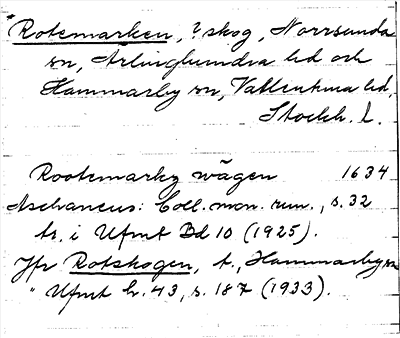 Rotemarken, ? skog, Norrsunda
sn, Ärlinghundra hd och
Hammarby sn, Vallentuna hd,
Stockh. l.
Rootemarks wägen 1634
Aschaneus: Coll. mon. run., s. 32
tr. i Ufmt Bd 10 (1925).
Jfr Rotskogen, t., Hammarby sn
" Ufmt h. 43, s. 187 (1933).